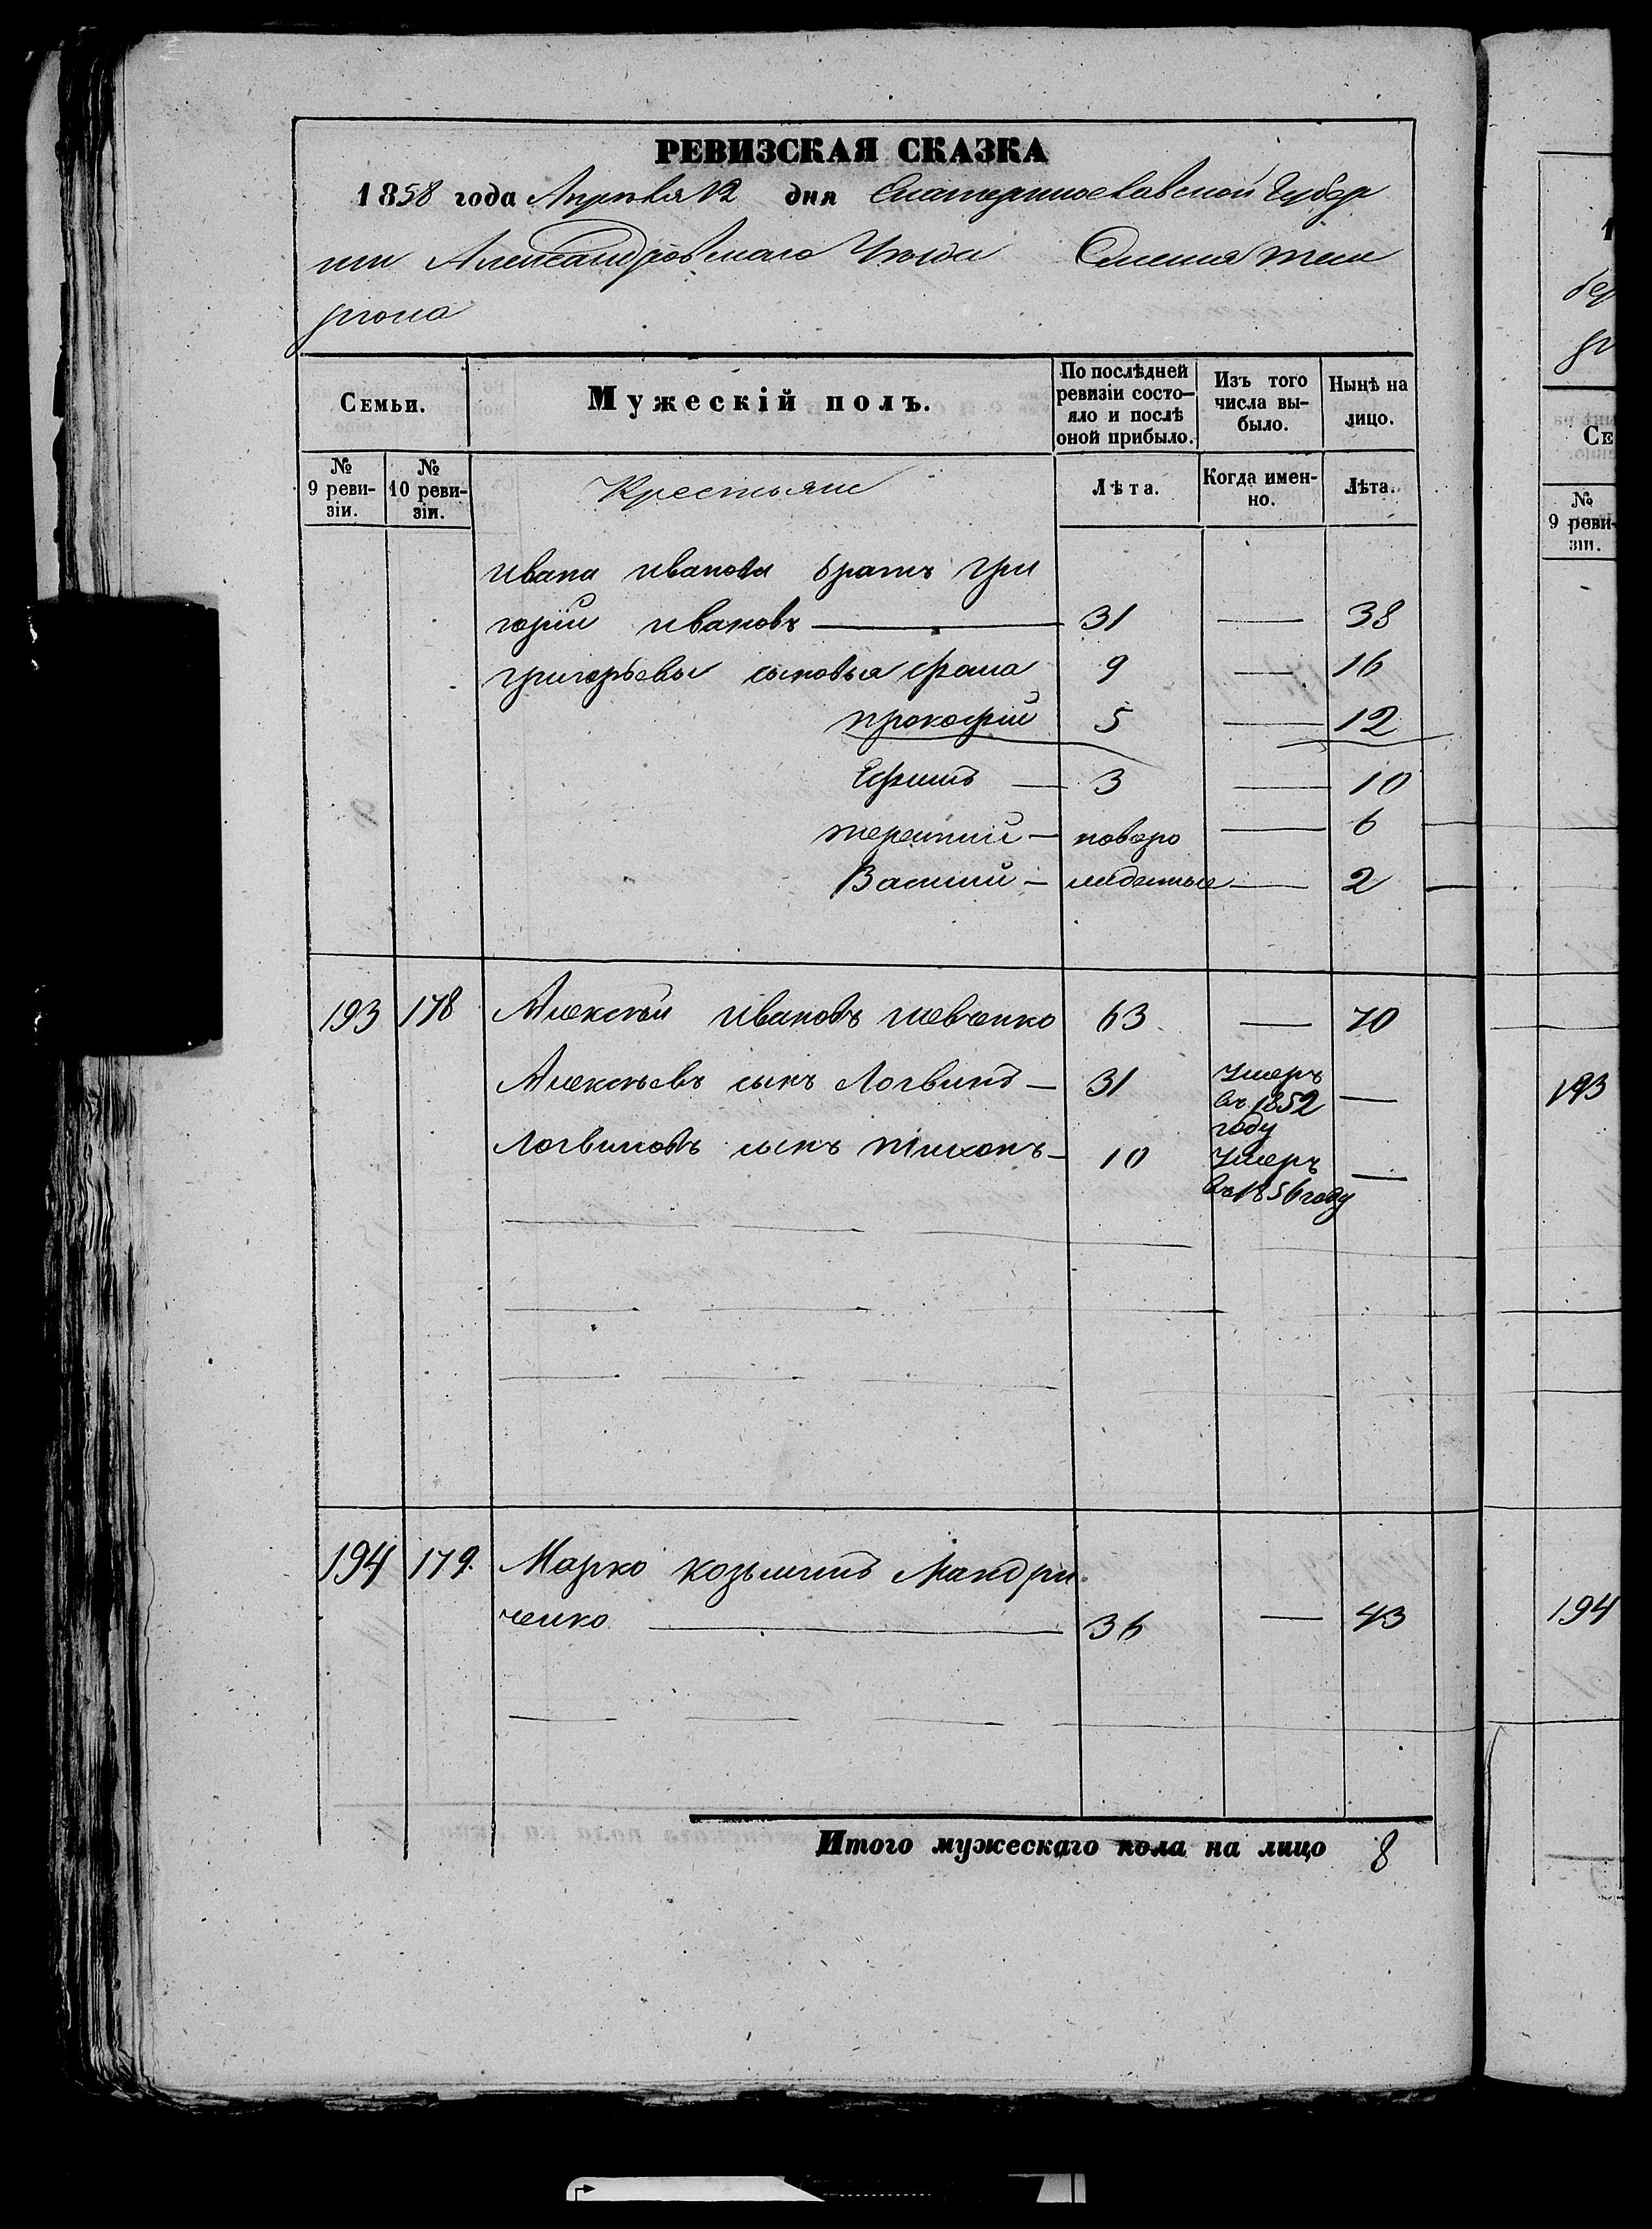 РЕВИЗСКАЯ СКАЗКА
1858 года Апрѣля 12 дня Екатеринославской Губер
нiи Александровскаго Уѣзда Селенiя Тем
рюка
Семьи.
Мужескій полъ.
По послѣдней ревизіи состо-яло и послѣ оной прибыло.
Изъ того числа вы-было.
Нынѣ на лицо.
№ 9 реви-зіи.
№ 10 реви-зіи.
Крестьяне
Лѣта.
Когда имен-но.
Лѣта.
Ивана Иванова братъ Гри
горiй Ивановъ — 31 — 38
Григорьевы сыновья Фома 9 — 16
Прокофiй 5 — 12
Ефимъ — 3 — 10
Терентiй — новоро — 6
Василiй — жденные — 2
193 178 Алексѣй Ивановъ Шевченко 63 — 70
Алексѣевъ сынъ Логвинъ — 31 Умеръ въ 1852 году —
Логвиновъ сынъ Тихонъ — 10 Умеръ въ 1856 году —
194 179. Марко Козьминъ Мандри
ченко — 36 — 43
Итого мужескаго пола на лицо 8
1
бер
рю
Се
№
9 реви-
зіи.
193
194